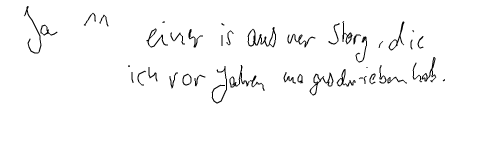 Ja ^^ einer is aus ner Story, die
ich vor Jahren ma geschrieben hab.